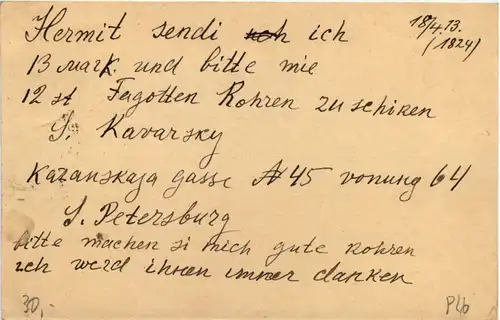 Hermit sendi ich
18/4.13.
(1824)
13 Mark. und bitte mie
12 st Fagotten Rohren zu schiken
S. Kavarsky
Kazanskaja gasse N 45 vonung 64
S. Petersburg
bitte machen si mich gute rohren
ich werd ihnen immer danken
30,-
P46